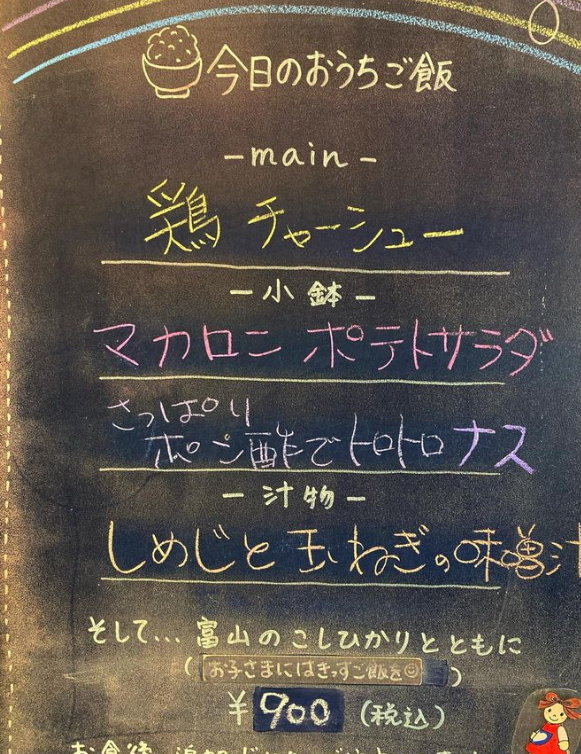 今日のおうちご飯
-main-
鶏チャーシュー
-小鉢-
マカロニ ポテトサラダ
さっぱり
ポン酢でトロトロナス
-汁物-
しめじと玉ねぎの味噌汁
そして...富山のこしひかりとともに
(お子さまにはきっずご飯を☺)
¥900 (税込)